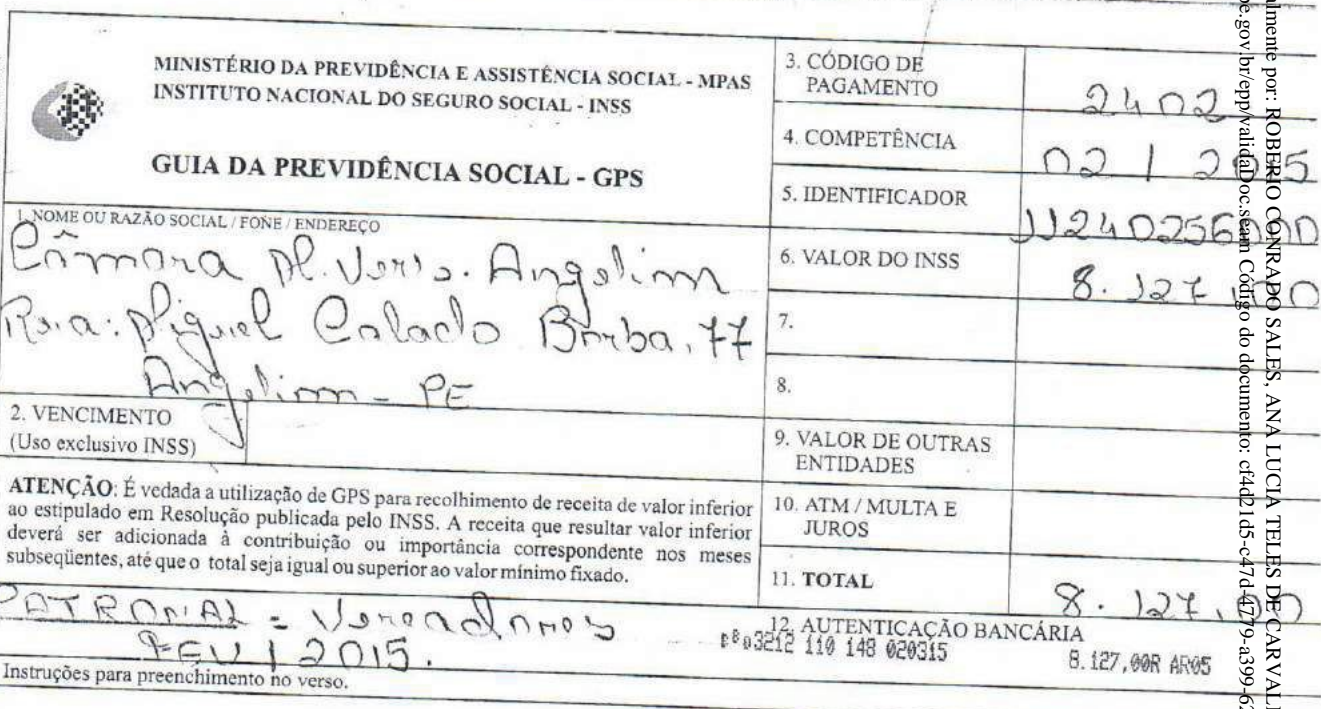 MINISTÉRIO DA PREVIDÊNCIA E ASSISTÊNCIA SOCIAL - MPAS
INSTITUTO NACIONAL DO SEGURO SOCIAL - INSS
GUIA DA PREVIDÊNCIA SOCIAL - GPS
1. NOME OU RAZÃO SOCIAL / FONE / ENDEREÇO
Câmara M. Vers. Angelim
Rua: Miguel Calado Borba, 77
Angelim - PE
2. VENCIMENTO
(Uso exclusivo INSS)
ATENÇÃO: É vedada a utilização de GPS para recolhimento de receita de valor inferior
ao estipulado em Resolução publicada pelo INSS. A receita que resultar valor inferior
deverá ser adicionada à contribuição ou importância correspondente nos meses
subseqüentes, até que o total seja igual ou superior ao valor mínimo fixado.
PATRONAL = Vereadores
FEV / 2015.
Instruções para preenchimento no verso.
3. CÓDIGO DE
PAGAMENTO
2402
4. COMPETÊNCIA
02 / 2015
5. IDENTIFICADOR
11240256000
6. VALOR DO INSS
8.127,00
7.
8.
9. VALOR DE OUTRAS
ENTIDADES
10. ATM / MULTA E
JUROS
11. TOTAL
8.127,00
12. AUTENTICAÇÃO BANCÁRIA
03212 110 148 020315 8.127,00R AR05
almente por: ROBERIO CONRADO SALES, ANA LUCIA TELES DE CARVAL
pe.gov.br/epp/validaDoc.seam Código do documento: cf4d21d5-c47d-4779-a399-62